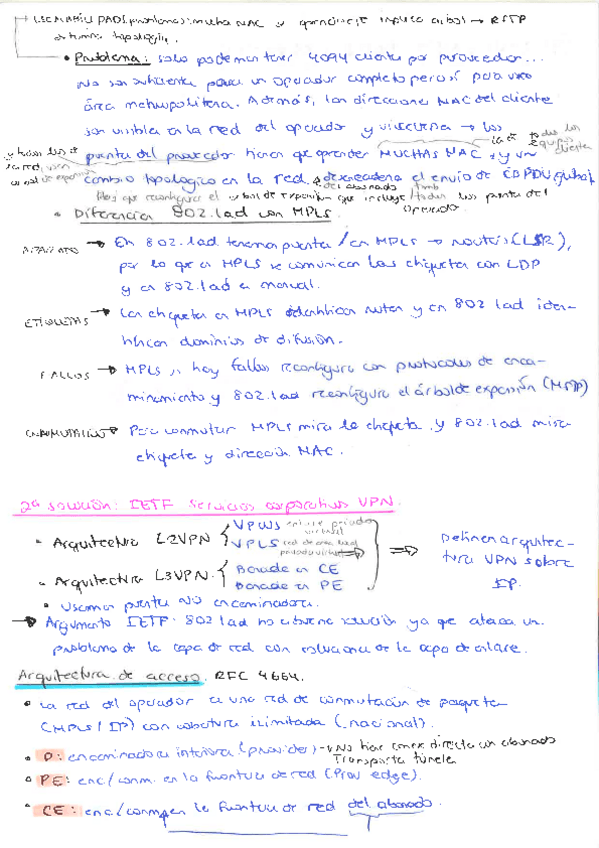 ESCALABILIDAD (problema): mucha MAC y aprendizaje implica arbol → RSTP
topologia.
• Problema: solo podemos tener 4094 cliente por proveedor...
No son suficiente para un operador completo pero sí para una
área metropolitana. Además, las direcciones MAC del cliente
son visible en la red del operador y viceversa → los
puente del proveedor tienen que aprender MUCHAS MAC, y un
cambio topologico en la red desencadena el envio de CBPDU
Hay que reconfigurar el arbol de expansión que incluye todos los puente del operador.
• Diferencias 802.1ad con MPLS.
→ En 802.1ad tenemos puente / en MPLS → routers (LSR),
por lo que en MPLS se comunican las etiquetas con LDP
y en 802.1ad es manual.
ETIQUETAS → Las etiquetas en MPLS identifican rutas y en 802.1ad iden-
tifican dominios de difusión.
FALLOS → MPLS si hay fallos reconfigura con protocolos de enca-
minamiento y 802.1ad reconfigura el árbol de expansión (MSTP)
CONMUTACIÓN → Para conmutar MPLS mira la etiqueta y 802.1ad mira
etiqueta y dirección MAC.
2ª solución: IETF Servicios corporativos VPN.
• Arquitectura L2VPN { VPWS enlace privado virtual
VPLS red de area local privada virtual
• Arquitectura L3VPN { Basada en CE
Basada en PE
⇒ Definen arquitec-
tura VPN sobre
IP.
• Usamos puente NO encaminadores.
→ Argumento IETF: 802.1ad no es buena solución ya que ataca un
problema de la capa de red con soluciones de la capa de enlace.
Arquitectura de acceso. RFC 4664.
• La red del operador es una red de conmutación de paquetes
(MPLS / IP) con cobertura ilimitada (nacional).
• P: encaminadores interiores (provider) → No hay conex directa con abonado
Transporta túneles
• PE: enc./conm. en la frontera de red (Prov edge).
• CE: enc./conm. en la frontera de red del abonado.